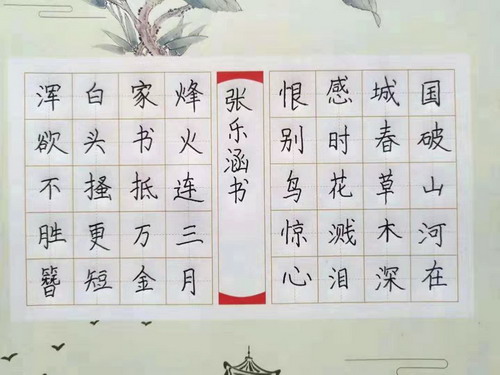 国破山河在
城春草木深
感时花溅泪
恨别鸟惊心
张乐涵书
烽火连三月
家书抵万金
白头搔更短
浑欲不胜簪